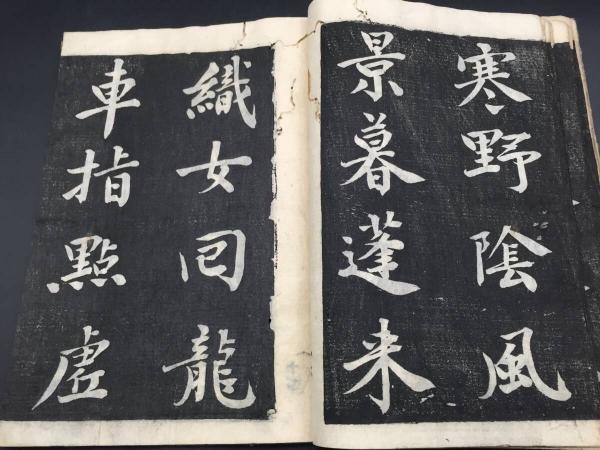 寒野陰風
景暮蓬来
織女囘龍
車指點虚